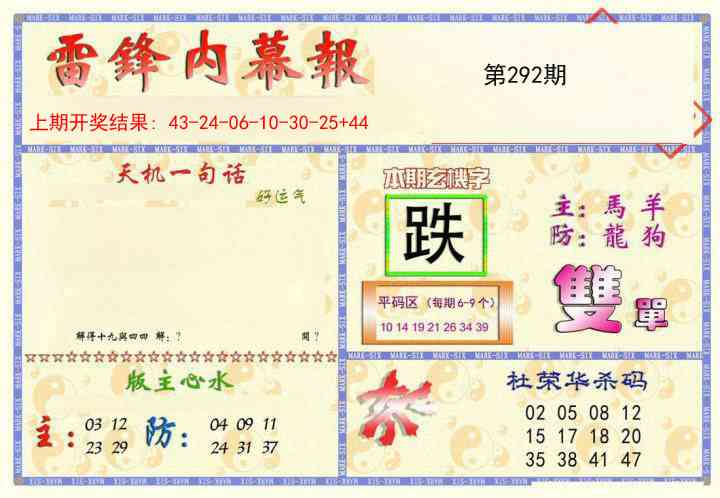 雷鋒内幕報
第292期
上期开奖结果: 43-24-06-10-30-25+44
天机一句话
好运气
解得十九與四四 解:? 開?
本期玄機字
跌
主:馬羊
防:龍狗
平码区(每期6-9个)
10 14 19 21 26 34 39
雙單
版主心水
主:03 12
23 29
防:04 09 11
24 31 37
杜荣华杀码
02 05 08 12
15 17 18 20
35 38 41 47
MARK-SIX